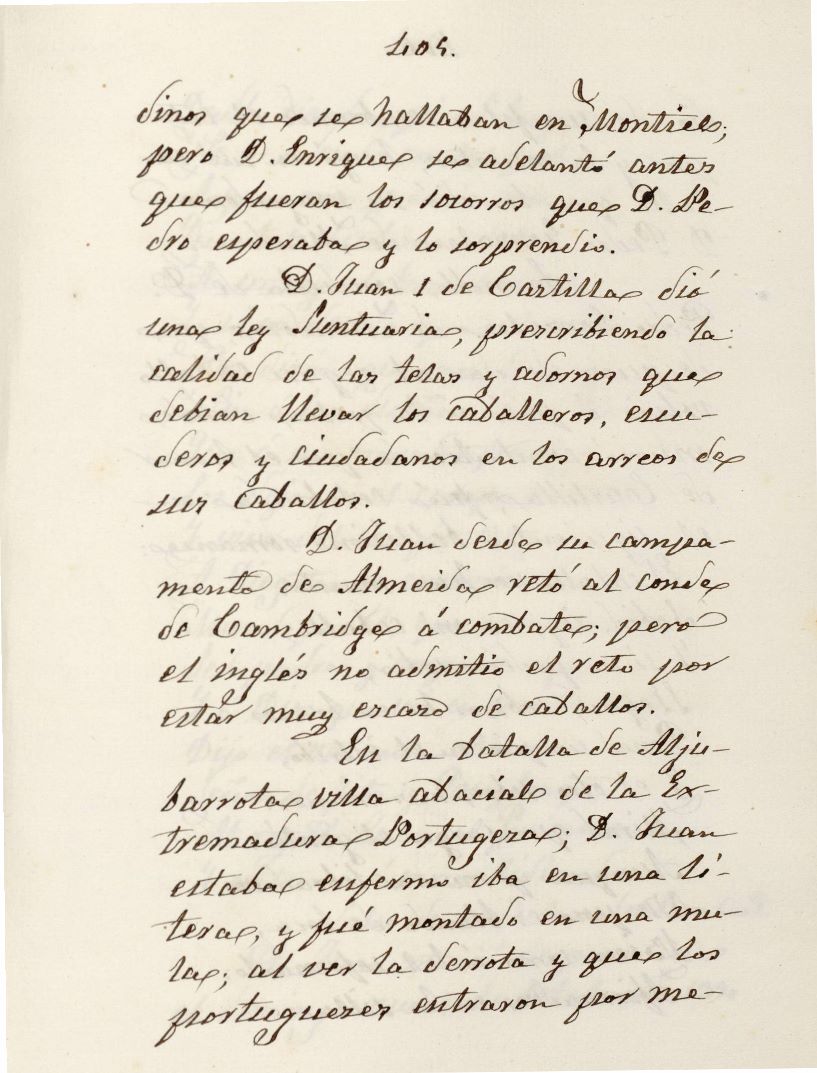 405.
dinos que se hallaban en Montiel;
pero D. Enrique se adelantó antes
que fueran los socorros que D. Pe-
dro esperaba y lo sorprendio.
D. Juan 1 de Castilla dió
una ley Suntuaria, prescribiendo la
calidad de las telas y adornos que
debian llevar los caballeros, escu-
deros y ciudadanos en los arreos de
sus caballos.
D. Juan desde su campa-
mento de Almeida retó al conde
de Cambridge á combate; pero
el inglés no admitio el reto por
estar muy escaso de caballos.
En la batalla de Alju-
barrota villa abacial de la Ex-
tremadura Portugeza; D. Juan
estaba enfermo iba en una li-
tera, y fué montado en una mu-
la; al ver la derrota y que los
portugueses entraron por me-